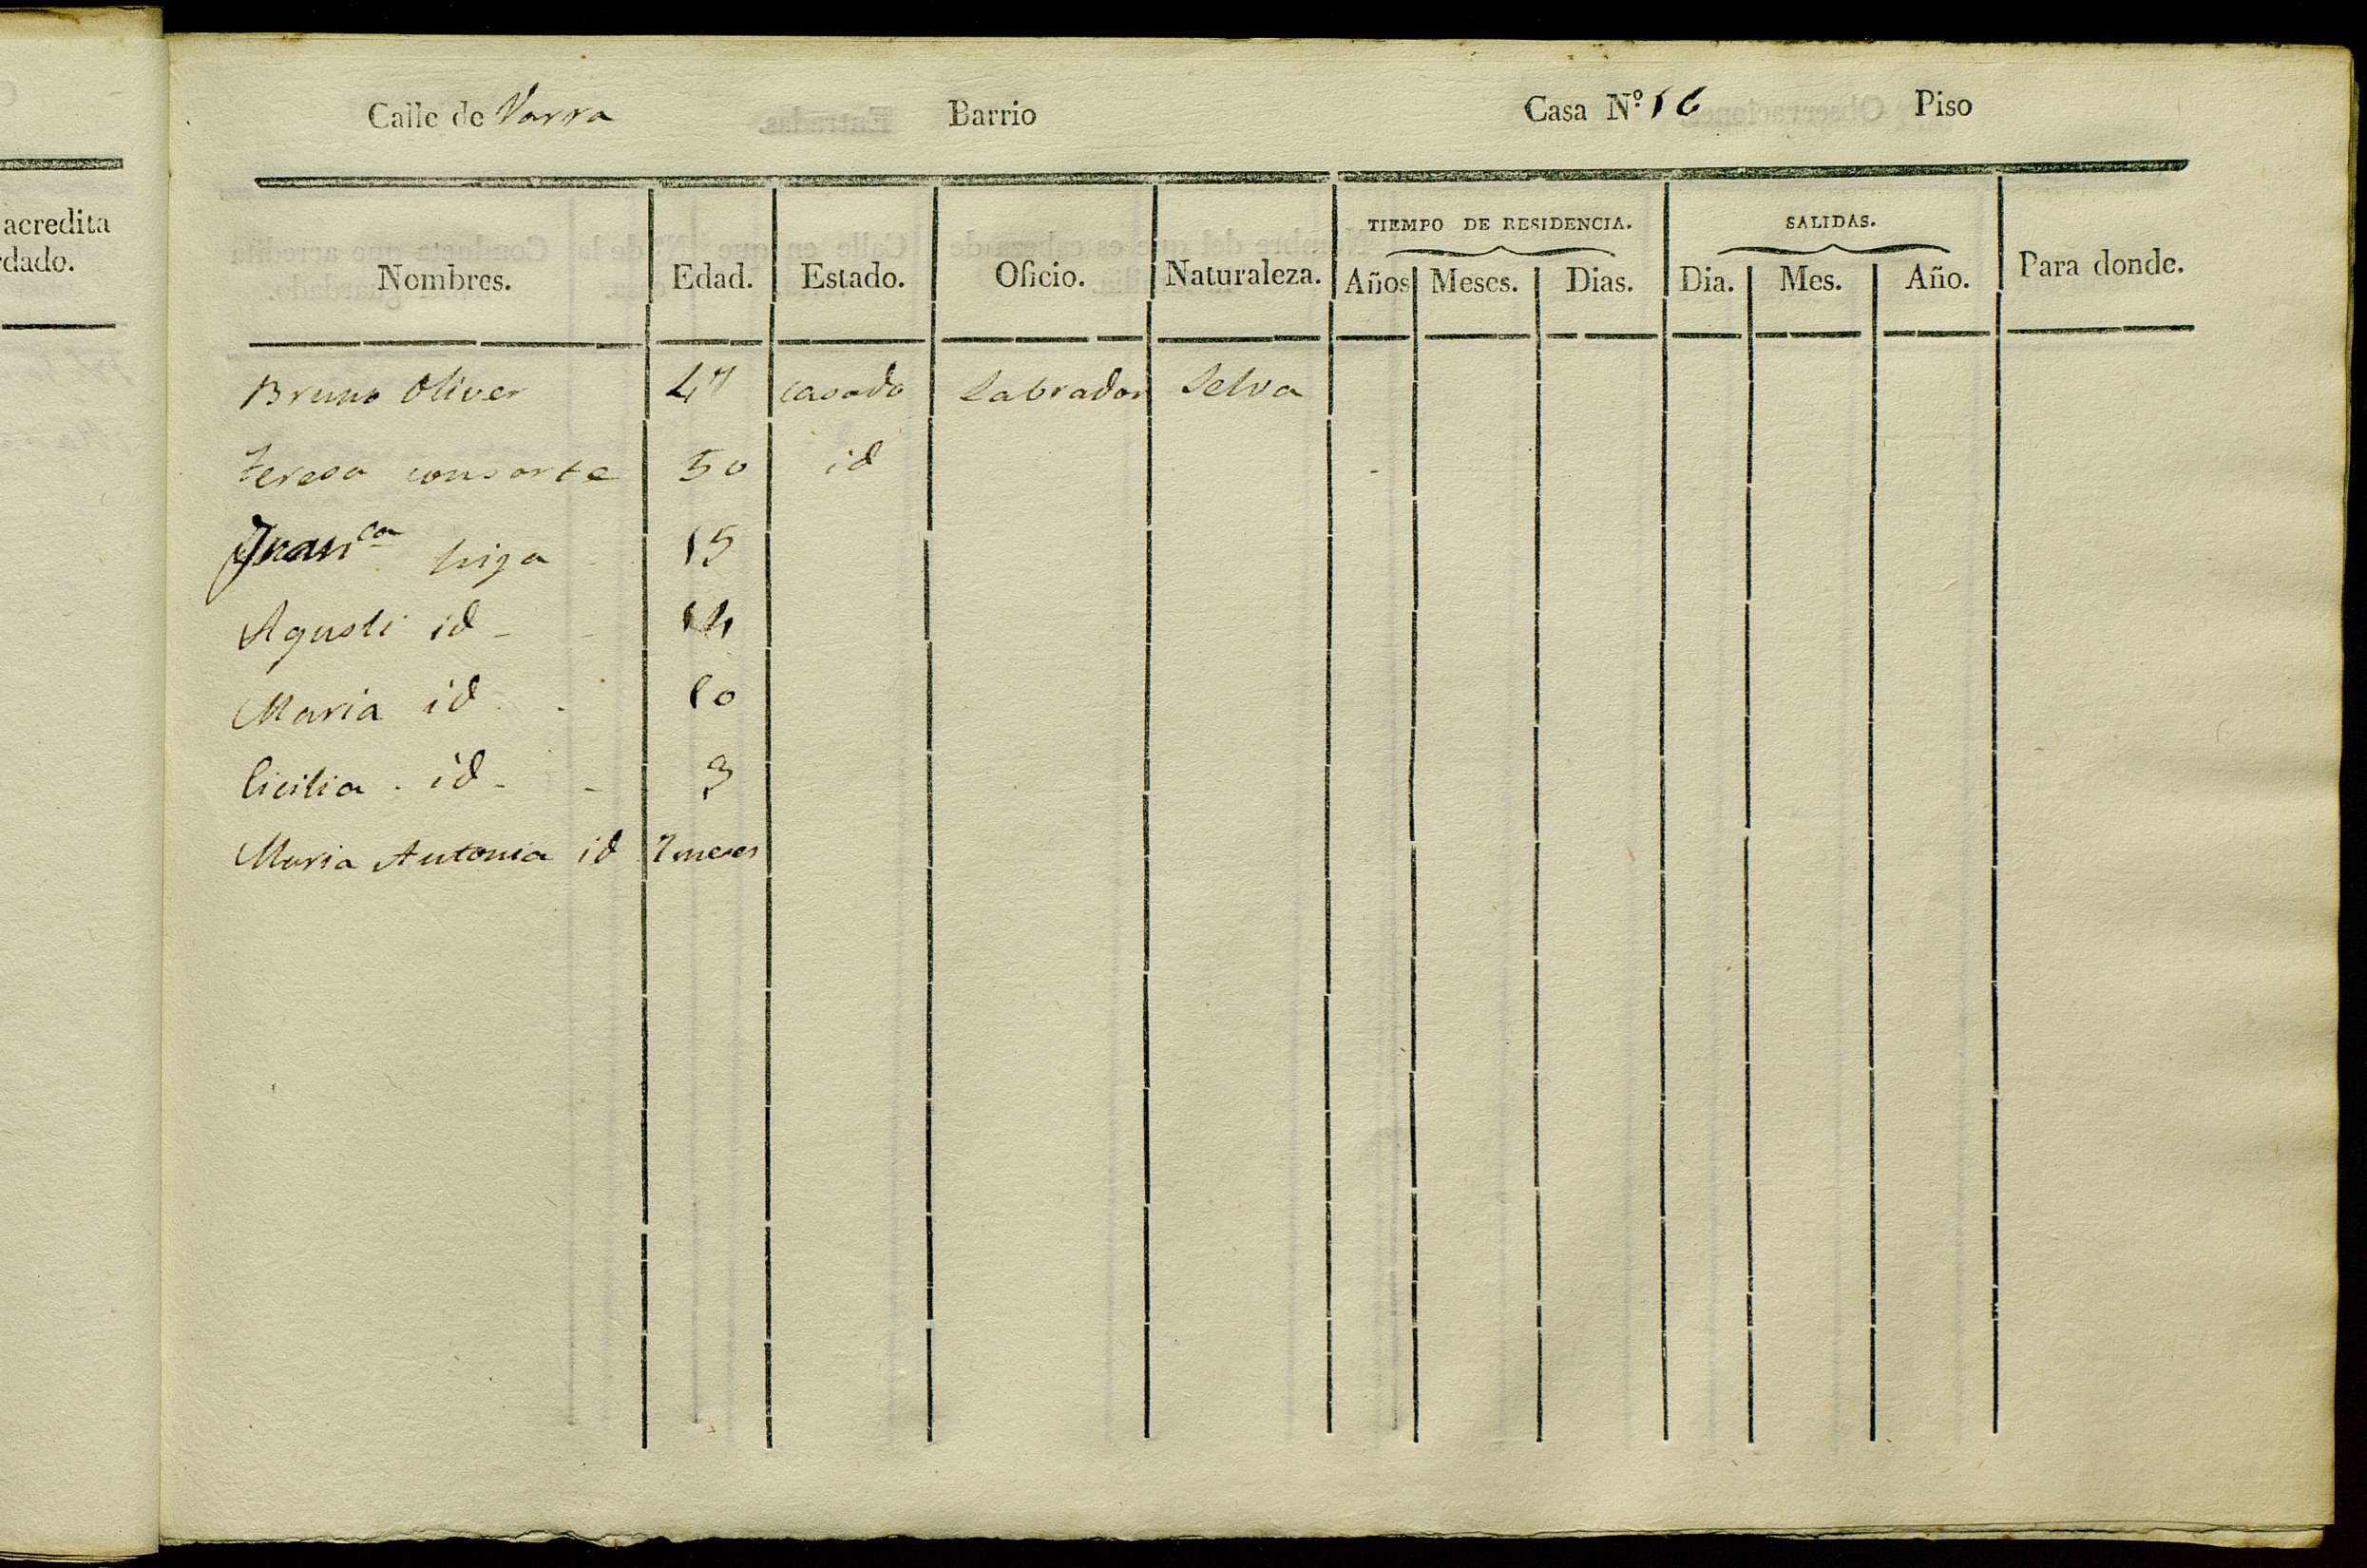 acredita
rdado.
Calle de Varra Barrio Casa N.º 16 Piso
TIEMPO DE RESIDENCIA. SALIDAS.
Nombres. Edad. Estado. Oficio. Naturaleza. Años Meses. Dias. Dia. Mes. Año. Para donde.
Bruno Oliver 47 casado Labrador Selva
Teresa consorte 50 id
Franca hija 15
Agusti id 14
Maria id 10
Cicilia id 3
Maria Antonia id 7 meses